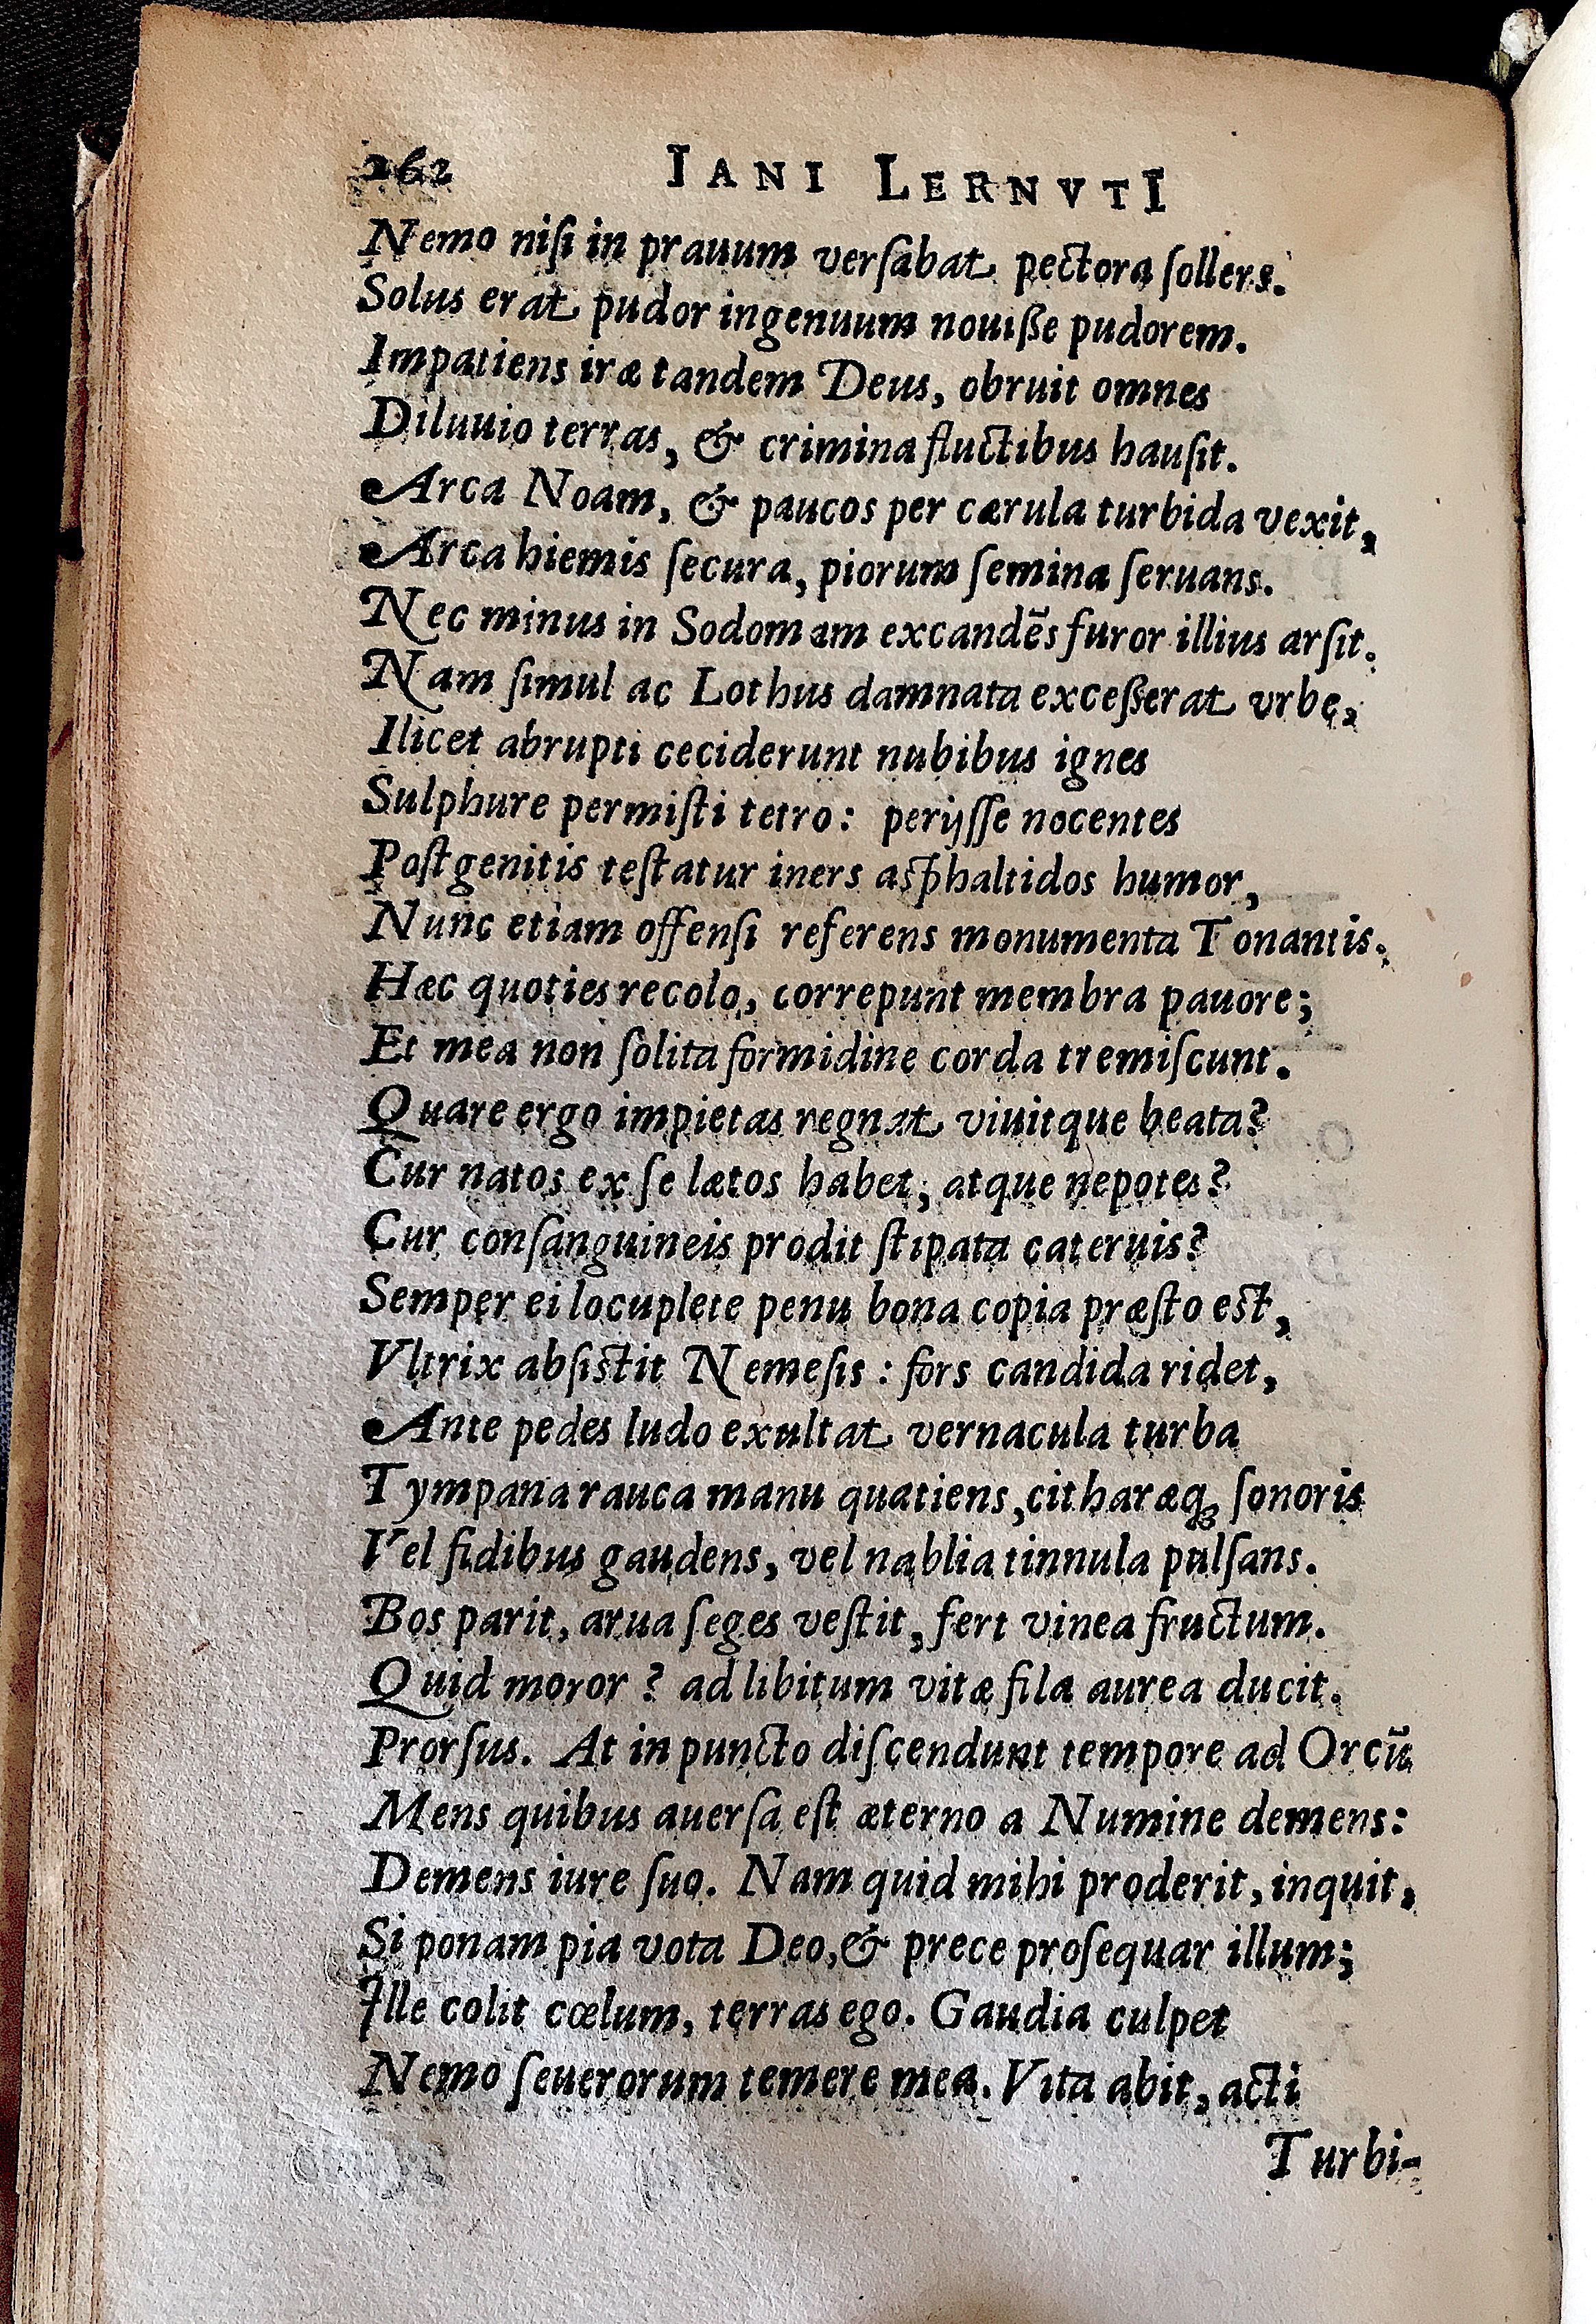 262 IANI LERNVTI
Nemo niſi in prauum verſabat pectora ſollers.
Solus erat pudor ingenuum nouiſſe pudorem.
Impatiens iræ tandem Deus, obruit omnes
Diluuio terras, & crimina fluctibus hauſit.
Arca Noam, & paucos per cærula turbida vexit,
Arca hiemis ſecura, piorum ſemina ſeruans.
Nec minus in Sodomam excandēs furor illius arſit.
Nam ſimul ac Lothus damnata exceſſerat vrbe,
Ilicet abrupti ceciderunt nubibus ignes
Sulphure permiſti tetro: perijſſe nocentes
Poſtgenitis teſtatur iners aſphaltidos humor,
Nunc etiam offenſi referens monumenta Tonantis.
Hæc quoties recolo, correpunt membra pauore;
Et mea non ſolita formidine corda tremiſcunt.
Quare ergo impietas regnat viuitque beata?
Cur natos ex ſe lætos habet, atque nepotes?
Cur conſanguineis prodit ſtipata cateruis?
Semper ei locuplete penu bona copia præſto eſt,
Vltrix abſiſtit Nemeſis: fors candida ridet,
Ante pedes ludo exultat vernacula turba
Tympana rauca manu quatiens, citharæq; ſonoris
Vel fidibus gaudens, vel nablia tinnula pulſans.
Bos parit, arua ſeges veſtit, fert vinea fructum.
Quid moror? ad libitum vitæ fila aurea ducit.
Prorſus. At in puncto diſcendunt tempore ad Orcū
Mens quibus auerſa eſt æterno a Numine demens:
Demens iure ſuo. Nam quid mihi proderit, inquit,
Si ponam pia vota Deo, & prece proſequar illum;
Ille colit cœlum, terras ego. Gaudia culpet
Nemo ſeuerorum temere mea. Vita abit, acti
Turbi-